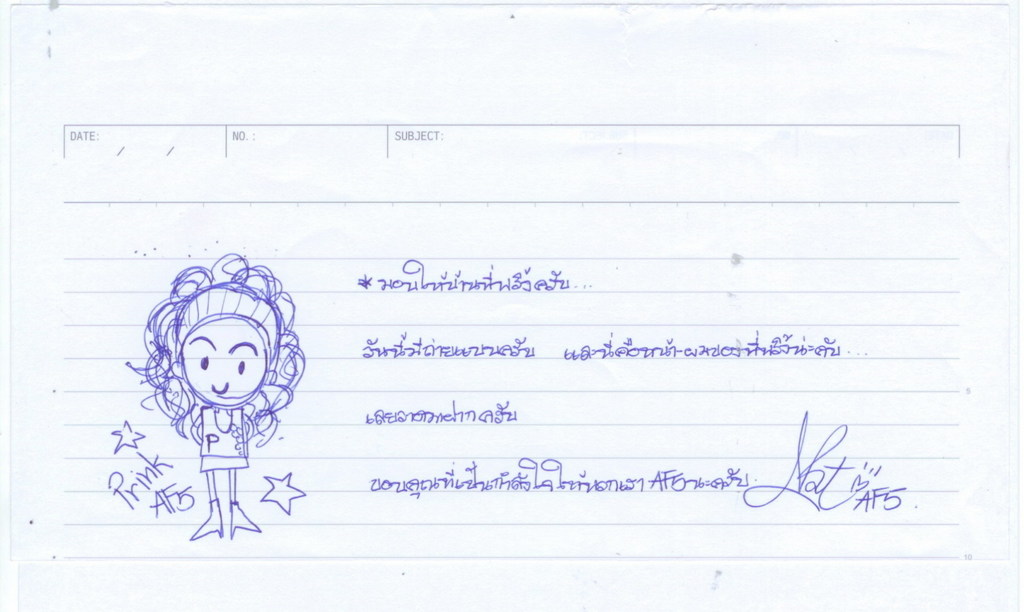 DATE: / /
NO.:
SUBJECT:
* มอบให้บ้านพี่พริ้งครับ...
วันนี้มีถ่ายแบบครับ และนี่คือหน้า-ผมของพี่พริ้งน่ะคับ...
เลยวาดมาฝากครับ
ขอบคุณที่เป็นกำลังใจให้พวกเรา AF5 นะครับ.
Nat AF5.
Prink
AF5
P
5
10